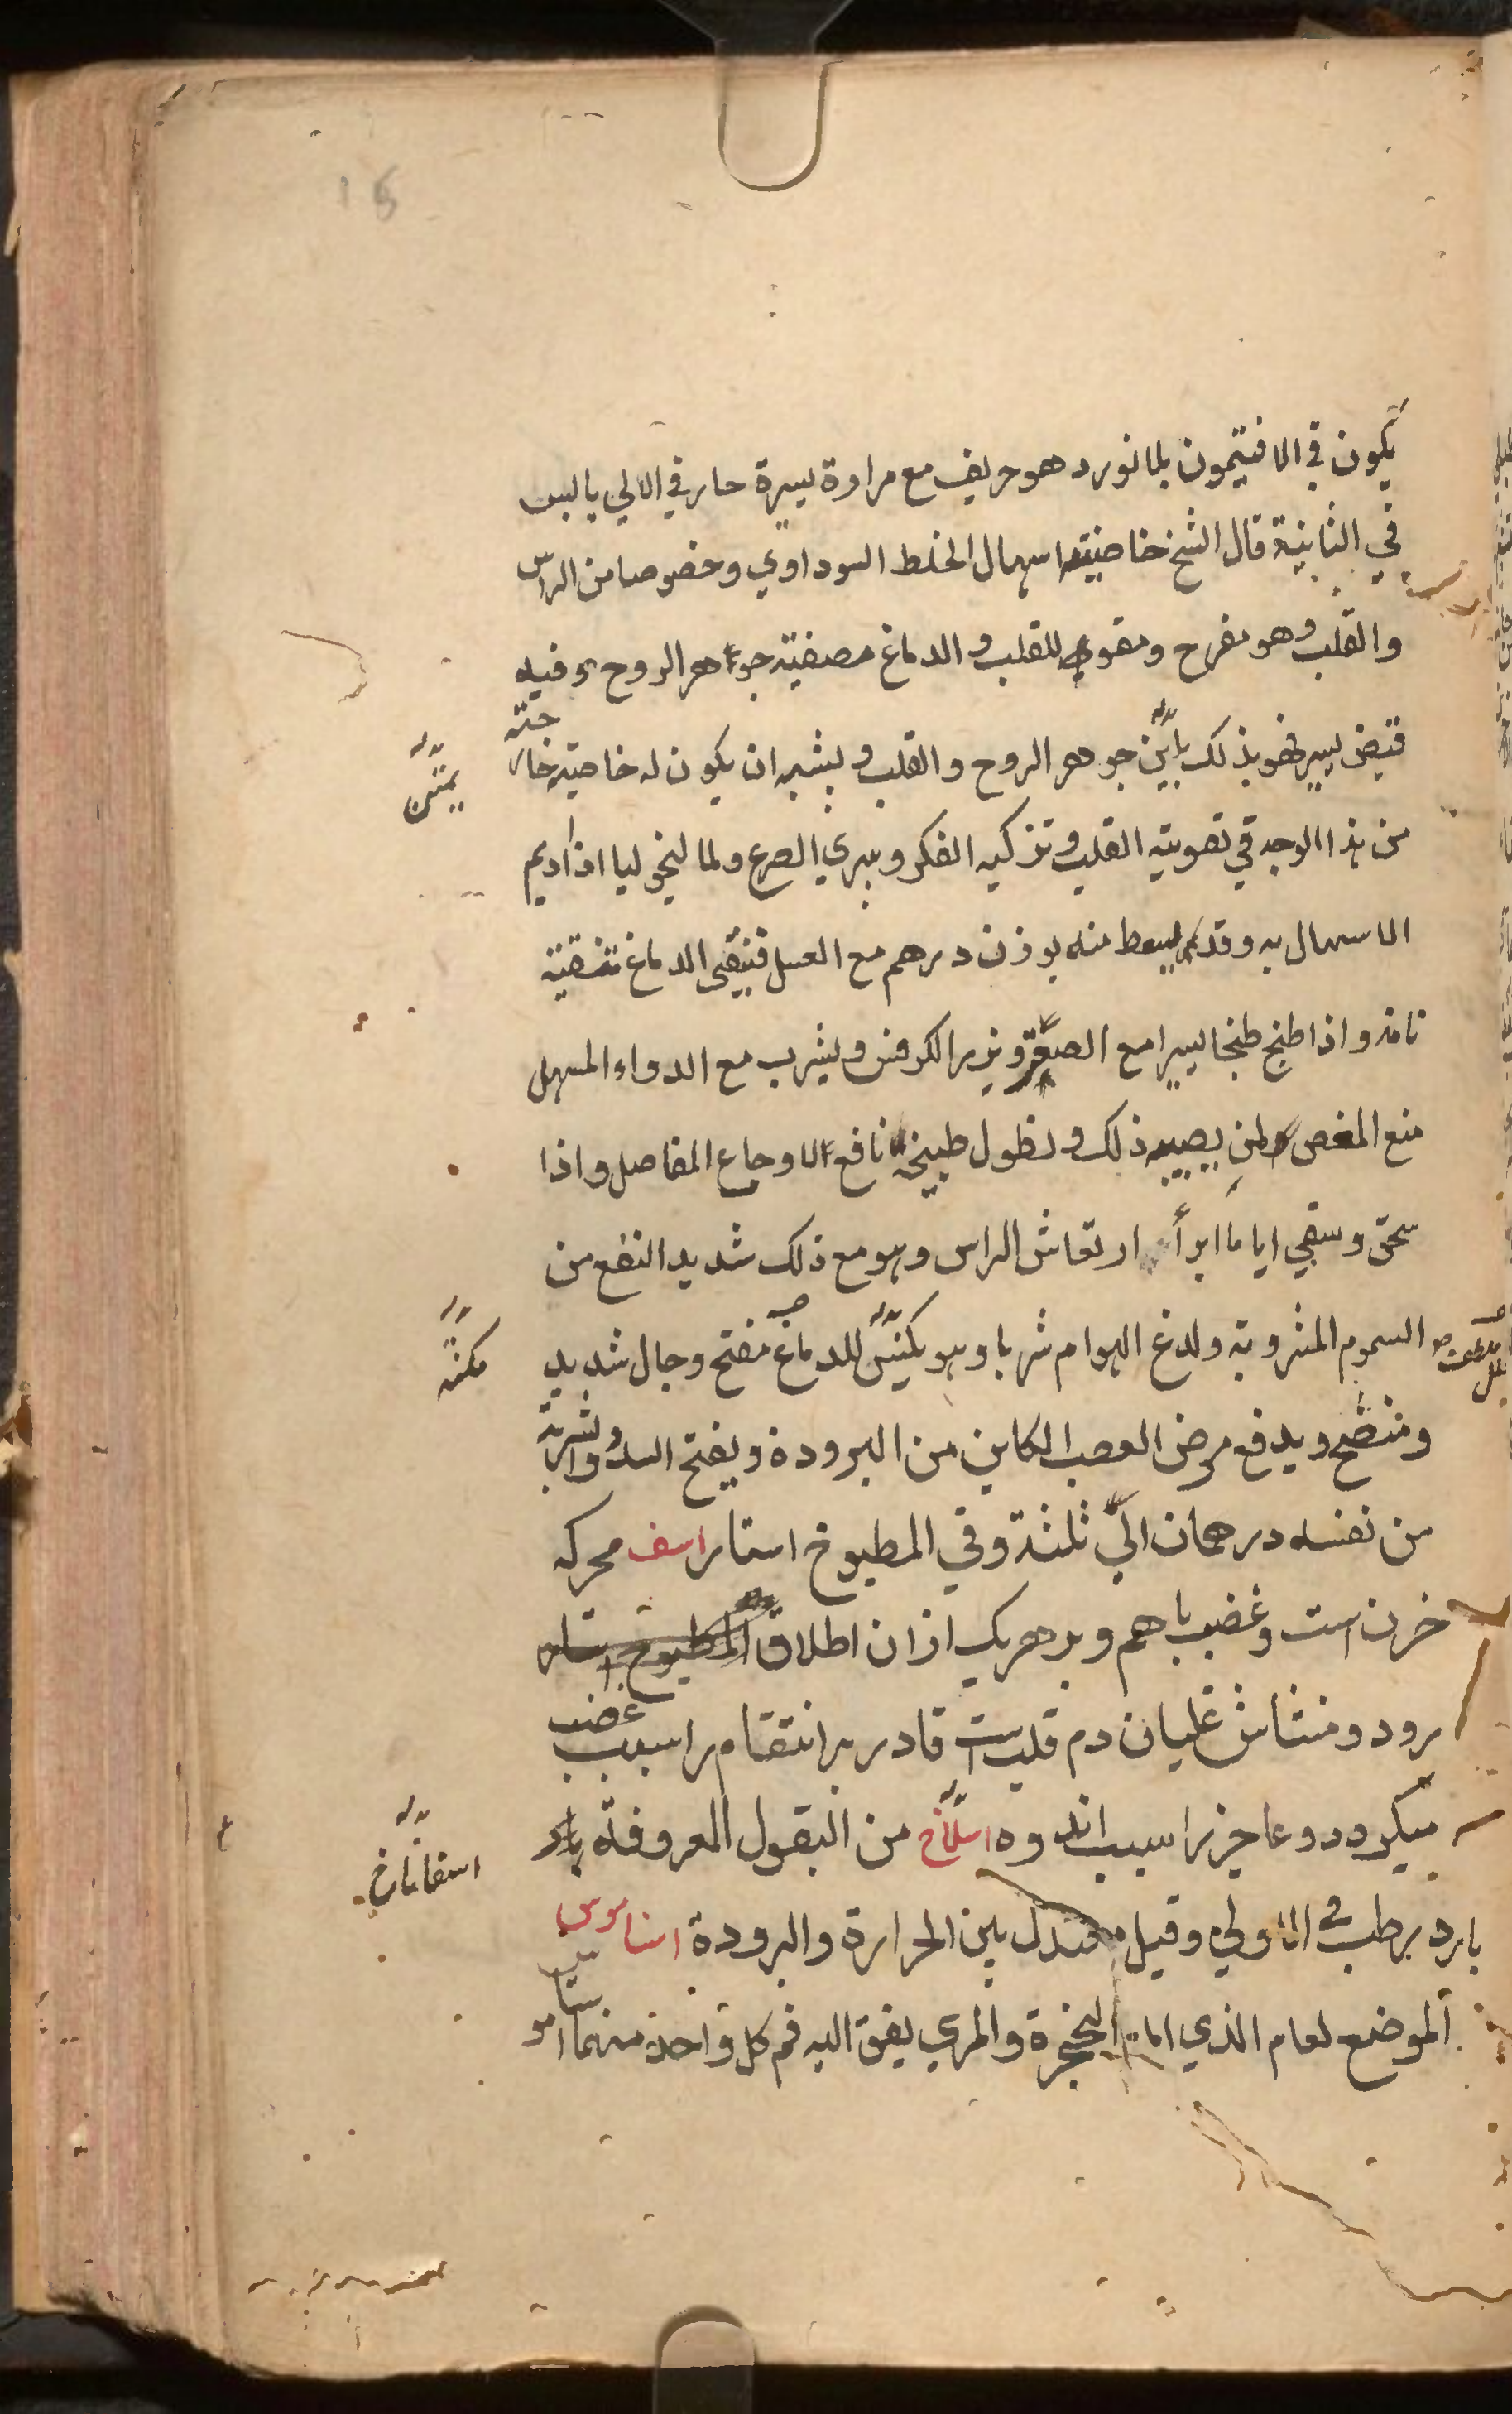 15
يكون في الافتيمون بلا نورد هو حريف مع مرارة يسيرة حار في الاولي يابس
في الثانية قال الشيخ خاصيته اسهال الخلط السوداوي وخصوصا من الراس
والقلب وهو مفرح ومقوي للقلب والدماغ مصفية جواهر الروح وفيه
قبض يسير فهو بذلك يمتن جوهر الروح والقلب ويشبه ان يكون له خاصية خارجة
يمتن
من هذا الوجه في تقوية القلب وتزكية الفكر ويبري الصرع ولمالنخوليا اذا اديم
الاسهال به وقد يسعط منه بوزن درهم مع العسل فينقي الدماغ تنقية
تامة واذا طبخ طبخا يسيرا مع الصعتر وبزر الكرفس ويشرب مع الدواء المسهل
منع المغص لمن يصيبه ذلك ونطول طبيخه نافع لاوجاع المفاصل واذا
سحق وسقي اياما ابرأ ارتعاش الراس وهو مع ذلك شديد النفع من
السموم المشروبة ولدغ الهوام شربا وهو يكنس للدماغ مفتح وجال شديد
مكنسة
ومنضج ويدفع مرض العصب الكاين من البرودة ويفتح السدد والشربة
من نفسه درهمان الي ثلثة وفي المطبوخ استار اسف محركه
خزن است وغضب باهم وبر هريك ازان اطلاق المطبوخ استار
رود ومنشاش غليان دم قلب است قادر بر انتقام را سبب غضب
ميكردد وعاجز را سبب اندوه اسفاناخ من البقول المعروفة بارد
اسفاناخ
بارد رطب في الاولي وقيل معتدل بين الحرارة والبرودة اسناموس
الموضع لعام الذي الحنجرة والمري يفتق اليه فم كل واحد منهما